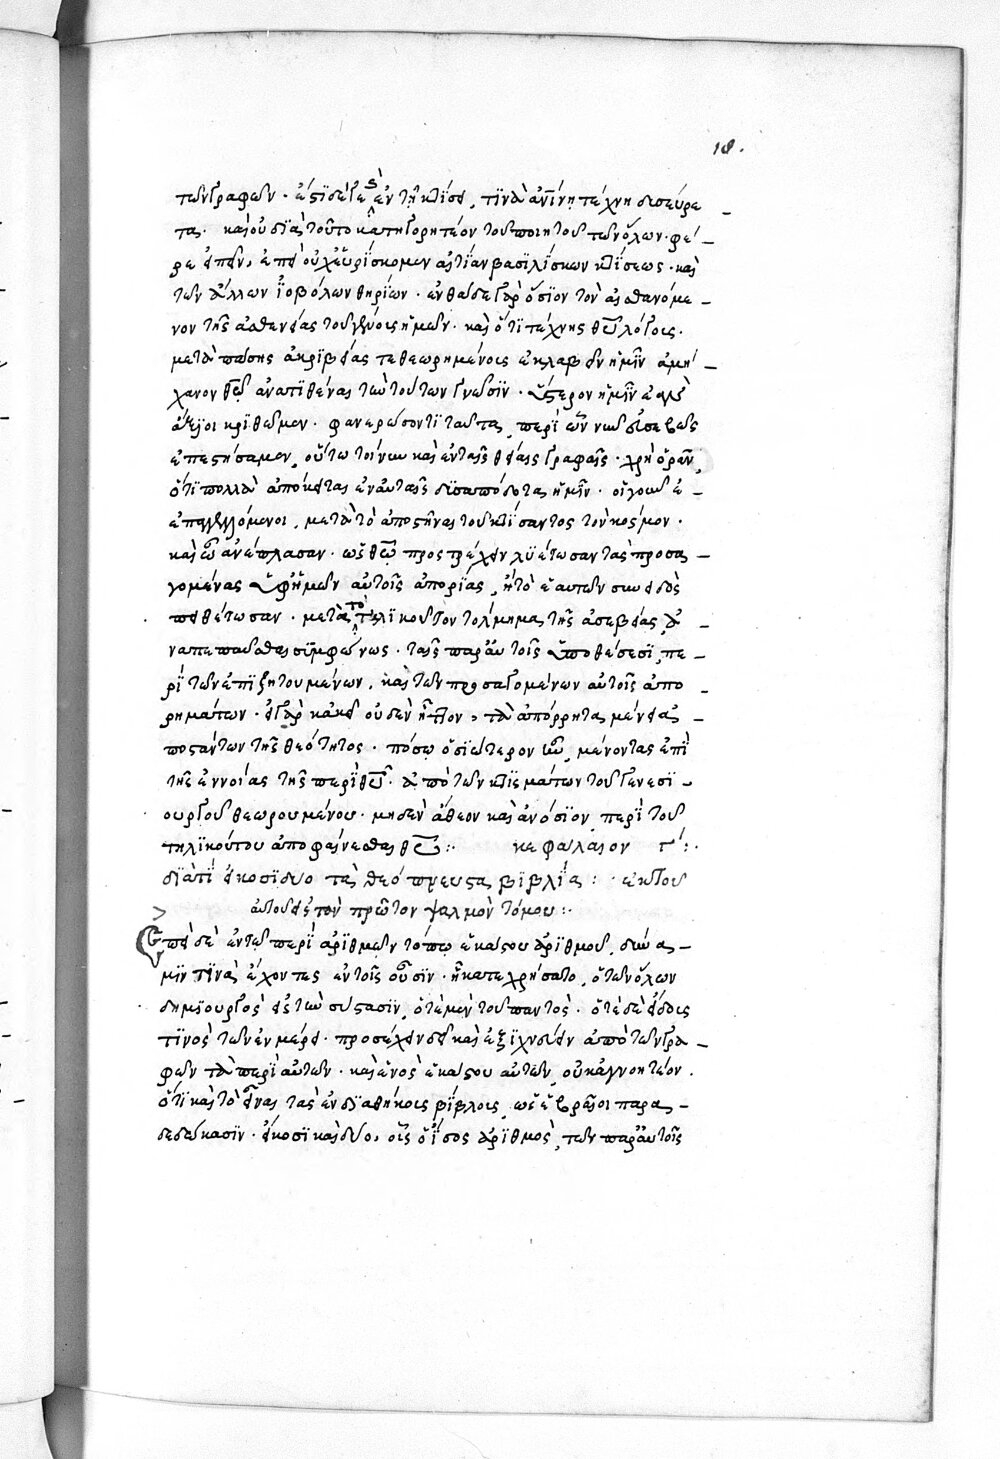 18.
τῶν γραφῶν. ἐπὶ δέ γε ἐν τῇ κτίσει, τινὰ ἀνθρωπίνῃ τέχνῃ δυσεύρε-
τα. καὶ οὐ διὰ τοῦτο κατηγορητέον τοῦ ποιητοῦ τῶν ὅλων. φέ-
ρε εἰπεῖν, ἐπεὶ οὐχ εὑρίσκομεν αἰτίαν βασιλίσκων κτίσεως. καὶ
τῶν ἄλλων ἰοβόλων θηρίων. ἐνθάδε γὰρ ὅσιον τὸν αἰσθανόμε-
νον τῆς ἀσθενείας τοῦ γένους ἡμῶν. καὶ ὅτι τέχνης θεοῦ λόγοις.
μετὰ πάσης ἀκριβείας τεθεωρημένοις ἐκλαβεῖν ἡμῖν ἀμή-
χανον θεῷ ἀνατιθέναι τὴν τούτων γνῶσιν. ὕστερον ἡμῖν ἐὰν
ἄξιοι κριθῶμεν. φανερώσοντι ταῦτα, περὶ ὧν νῦν εὐσεβῶς
ἐπεστήσαμεν, οὕτω τοίνυν καὶ ἐν ταῖς θείαις γραφαῖς. χρὴ ὁρᾶν,
ὅτι πολλὰ ἀπόκειται ἐν αὐταῖς δυσαπόδοτα ἡμῖν. οἱ γοῦν ἐ-
επαγγελλόμενοι, μετὰ τὸ ἀποστῆναι τοῦ κτίσαντος τὸν κόσμον.
καὶ ᾧ ἀνέπλασαν. ὡς θεῷ προστρέχειν λυέτωσαν τὰς προσα-
γομένας ὑφ' ἡμῶν αὐτοῖς ἀπορίας, ἢ τὸ ἑαυτῶν συνειδὸς
πειθέτωσαν. μετὰ τὸ τηλικοῦτον τόλμημα τῆς ἀσεβείας, ἀ-
ναπεπαῦσθαι συμφώνως. ταῖς παρ' αὐτοῖς ὑποθέσεσι, πε-
ρὶ τῶν ἐπιζητουμένων, καὶ τῶν προσαγομένων αὐτοῖς ἀπο-
ρημάτων. εἰ γὰρ κἀκεῖ οὐδὲν ἧττον, τὰ ἀπόρρητα μένει ἀ-
ποστάντων τῆς θεότητος. πόσῳ ὁσιώτερον ἦν, μένοντας ἐπὶ
τῆς ἐννοίας τῆς περὶ θεοῦ. ἀπὸ τῶν κτισμάτων τοῦ γενεσι-
ουργοῦ θεωρουμένου. μηδὲν ἄθεον καὶ ἀνόσιον, περὶ τοῦ
τηλικούτου ἀποφαίνεσθαι θεοῦ:. κεφάλαιον γ΄:.
διὰ τί εἴκοσι δύο τὰ θεόπνευστα βιβλία:. ἐκ τοῦ
αὐτοῦ εἰς τὸν πρῶτον ψαλμὸν τόμου:.
Ἐπεὶ δὲ ἐν τῷ περὶ ἀριθμῶν τόπῳ ἑκάστου ἀριθμοῦ, δύνα-
μίν τινα ἔχοντος ἐν τοῖς οὖσιν. ᾗ κατεχρήσατο, ὁ τῶν ὅλων
δημιουργὸς εἰς τὴν σύστασιν, ὁτὲ μὲν τοῦ παντὸς. ὁτὲ δὲ εἴδους
τινὸς τῶν ἐν μέρει. προσέχειν δεῖ καὶ ἐξιχνεύειν ἀπὸ τῶν γρα-
φῶν τὰ περὶ αὐτῶν. καὶ ἑνὸς ἑκάστου αὐτῶν, οὐκ ἀγνοητέον.
ὅτι καὶ τὸ εἶναι τὰς ἐνδιαθήκους βίβλους, ὡς ἑβραῖοι παρα-
δεδώκασιν. εἴκοσι καὶ δύο, οἷς ὁ ἴσος ἀριθμὸς, τῶν παρ' αὐτοῖς